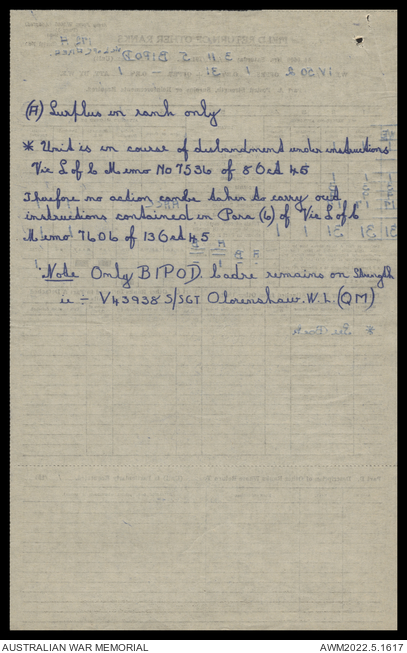 (A) Surplus in rank only
* Unit is in course of disbandment under instructions
Vic L of C Memo No 7536 of 8 Oct 45
Therefore no action can be taken to carry out
instructions contained in Para (6) of Vic L of C
Memo 7606 of 13 Oct 45
Note Only BIPOD Cadre remains on Strength
ie :- V43938 S/SGT Olorenshaw. W. L. (QM)
AUSTRALIAN WAR MEMORIAL
AWM2022.5.1617